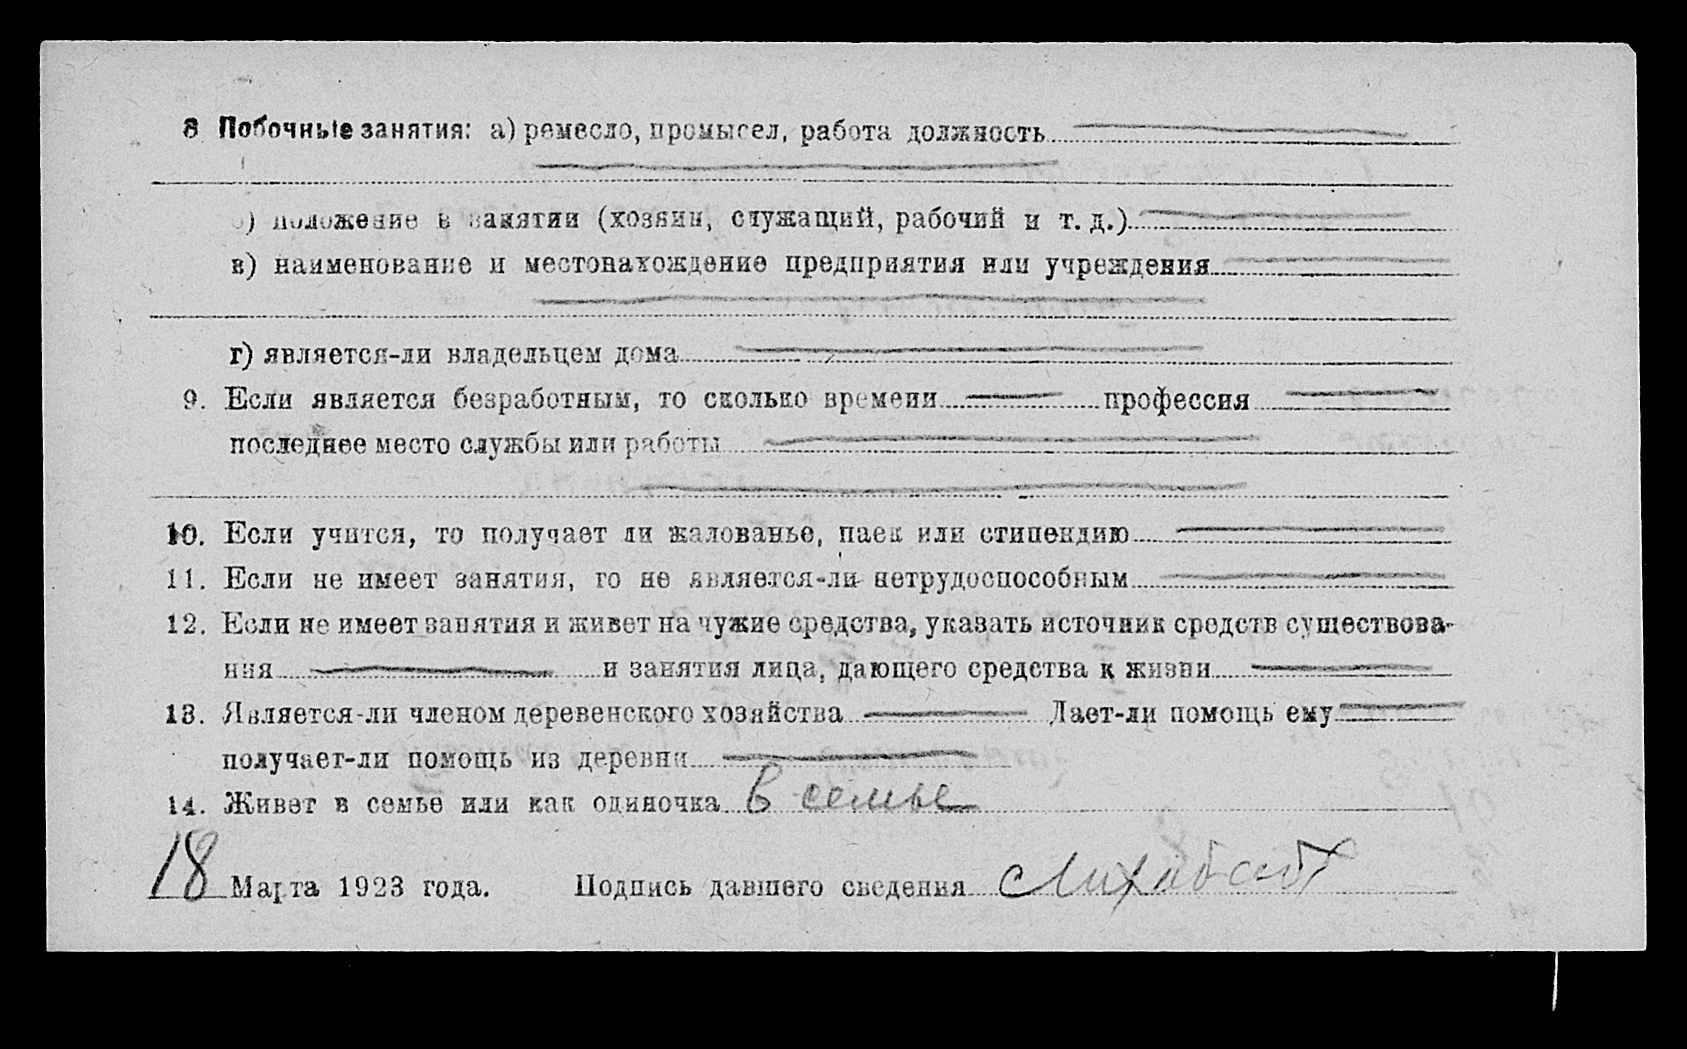 8 Побочные занятия: а) ремесло, промысел, работа должность
б) положение в занятии (хозяин, служащий, рабочий и т. д.)
в) наименование и местонахождение предприятия или учреждения
г) является-ли владельцем дома
9. Если является безработным, то сколько времени профессия
последнее место службы или работы
10. Если учится, то получает ли жалованье, паек или стипендию
11. Если не имеет занятия, то не является-ли нетрудоспособным
12. Если не имеет занятия и живет на чужие средства, указать источник средств существова-
ния и занятия лица, дающего средства к жизни
13. Является-ли членом деревенского хозяйства Дает-ли помощь ему
получает-ли помощь из деревни
14. Живет в семье или как одиночка в семье
18 Марта 1923 года. Подпись давшего сведения